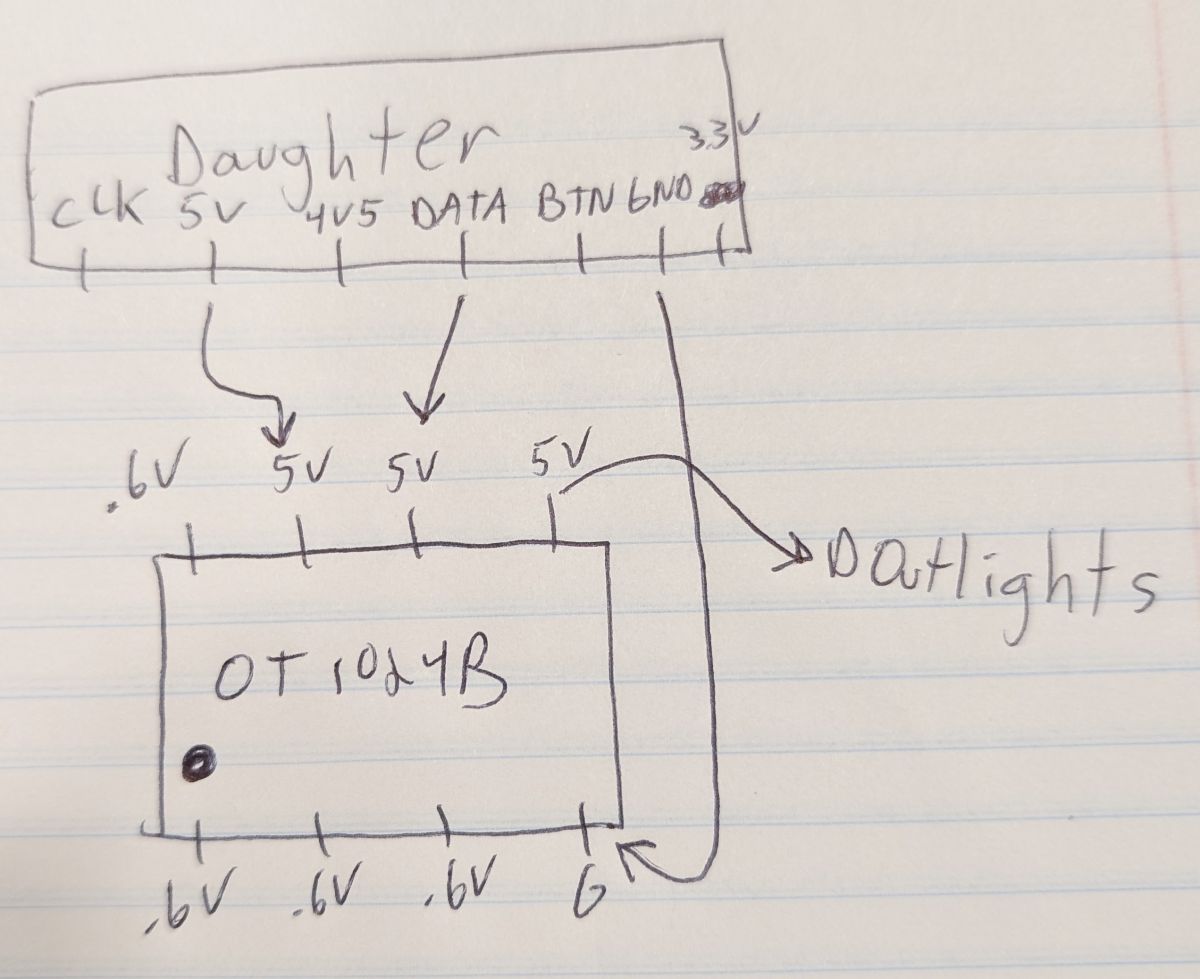 Daughter
3.3V
CLK 5V 4V5 DATA BTN GND
.6V 5V 5V 5V
DATlights
OT 1024B
.6V .6V .6V G